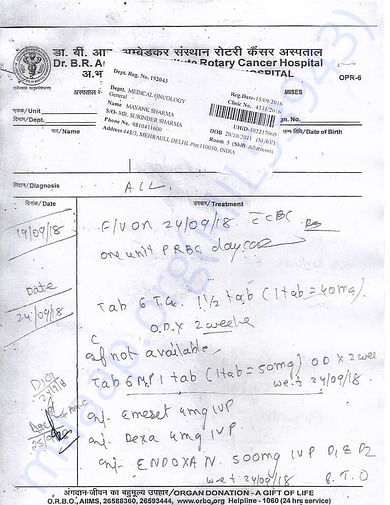 डा. बी. आर. अम्बेडकर संस्थान रोटरी कैंसर अस्पताल
Dr. B.R. A Institute Rotary Cancer Hospital
अ.भ HOSPITAL
OPR-6
अस्पताल MISES
Dept. Reg. No. 192043
Dept. MEDICAL ONCOLOGY
General
Name MAYANK SHARMA
S/O- MR. SURINDER SHARMA
Phone No. 9810411600
Address 448/3, MEHRAULI, DELHI, Pin:110030, INDIA
Reg.Date-15/09/2018
Clinic No. 4331/2018
UHID
DOB 20/10/2011
Room 5 (Shift Afternoon)
एकक/Unit
विभाग/Dept.
gn. No.
नाम/Name
जन्म तिथि/Date of Birth
निदान/Diagnosis
ALL
दिनांक/Date
उपचार/Treatment
19/09/18
F/U on 24/09/18 c CBC
one unit PRBC daycare
Date
24/09/18
Tab 6 T.G. 1 1/2 tab (1 tab = 40mg)
O.D. X 2 weeks
If not available,
Tab 6 MP 1 tab (1 tab = 50mg) OD X 2 wee
w.e.f 24/09/18.
inj- Emeset 4mg IVP
inj- Dexa 4mg IVP
inj- ENDOXAN 500mg IVP D1 & D2
w.e.f 24/09/18
P.T.O
अंगदान-जीवन का बहुमूल्य उपहार/ORGAN DONATION - A GIFT OF LIFE
O.R.B.O., AIIMS, 26588360, 26593444, www.orbo.org Helpline - 1060 (24 hrs service)